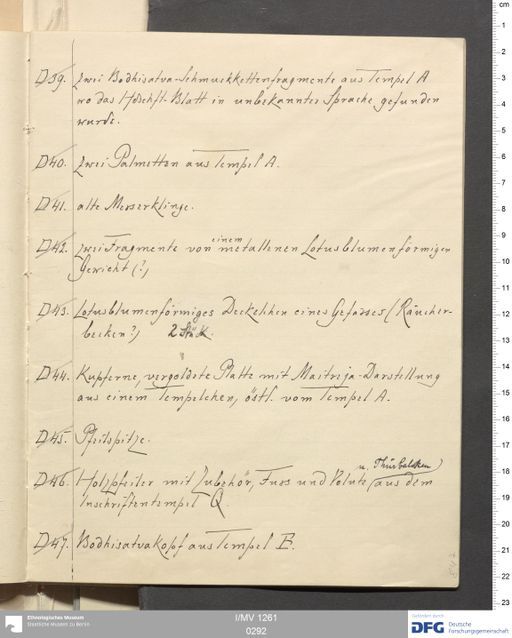 D39. Zwei Bodhisatva-Schmuckkettenfragmente aus Tempel A
wo das Hdschft-Blatt in unbekannter Sprache gefunden
wurde.
D40. Zwei Palmetten aus Tempel A.
D41. alte Messerklinge.
einem
D42. Zwei Fragmente von metallenen Lotusblumenförmigen
Gewicht (?)
D43. Lotusblumenförmiges Deckelchen eines Gefässes (Räucher-
becken?) 2 Stück.
D44. Kupferne, vergoldete Platte mit Maitreja-Darstellung
aus einem Tempelchen, östl. vom Tempel A.
D45. Pfeilspitze.
u. Thürbalken
D46. Holzpfeiler mit Zubehör, Fuss und Volute (aus dem
Inschriftentempel Q.
D47. Bodhisatvakopf aus Tempel B.
Ethnologisches Museum
Staatliche Museen zu Berlin
I/MV 1261
0292
Gefördert durch
DFG Deutsche
Forschungsgemeinschaft
cm
1
2
3
4
5
6
7
8
9
10
11
12
13
14
15
16
17
18
19
20
21
22
23